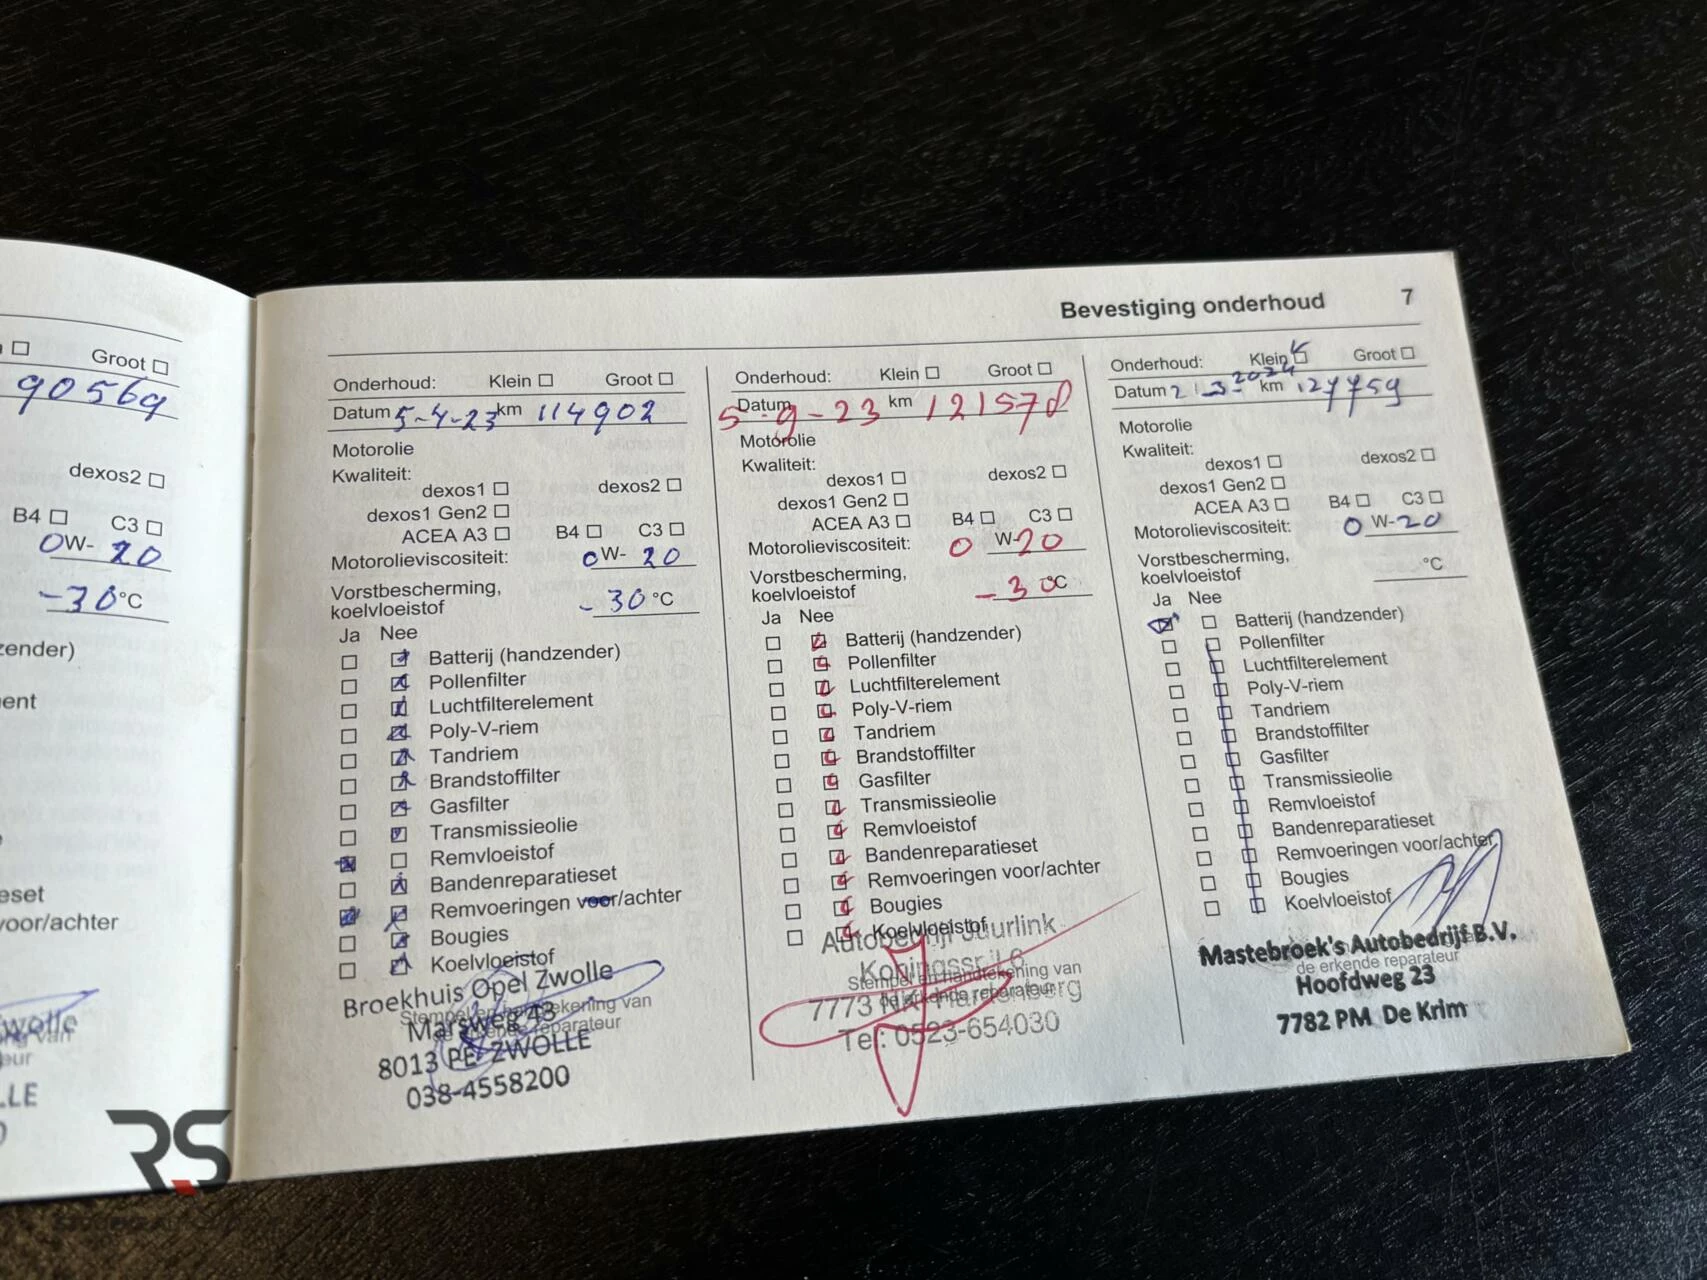 Groot
90569
dexos2
B4 C3
0W-20
-30°C
zender)
ent
eset
voor/achter
Bevestiging onderhoud 7
Onderhoud: Klein Groot
Datum 5-4-23 km 114902
Motorolie
Kwaliteit:
dexos1 dexos2
dexos1 Gen2
ACEA A3 B4 C3
Motorolieviscositeit: 0W-20
Vorstbescherming,
koelvloeistof -30°C
Ja Nee
Batterij (handzender)
Pollenfilter
Luchtfilterelement
Poly-V-riem
Tandriem
Brandstoffilter
Gasfilter
Transmissieolie
Remvloeistof
Bandenreparatieset
Remvoeringen voor/achter
Bougies
Koelvloeistof
Stempel en handtekening van
de erkende reparateur
Broekhuis Opel Zwolle
Marsweg 43
8013 PE ZWOLLE
038-4558200
Onderhoud: Klein Groot
Datum 5-9-23 km 121570
Motorolie
Kwaliteit:
dexos1 dexos2
dexos1 Gen2
ACEA A3 B4 C3
Motorolieviscositeit: 0W-20
Vorstbescherming,
koelvloeistof -30°C
Ja Nee
Batterij (handzender)
Pollenfilter
Luchtfilterelement
Poly-V-riem
Tandriem
Brandstoffilter
Gasfilter
Transmissieolie
Remvloeistof
Bandenreparatieset
Remvoeringen voor/achter
Bougies
Koelvloeistof
Stempel en handtekening van
de erkende reparateur
Autobedrijf
7773
Tel: 0523-654030
Onderhoud: Klein Groot
Datum 2-3-2024 km 127759
Motorolie
Kwaliteit:
dexos1 dexos2
dexos1 Gen2
ACEA A3 B4 C3
Motorolieviscositeit: 0W-20
Vorstbescherming,
koelvloeistof °C
Ja Nee
Batterij (handzender)
Pollenfilter
Luchtfilterelement
Poly-V-riem
Tandriem
Brandstoffilter
Gasfilter
Transmissieolie
Remvloeistof
Bandenreparatieset
Remvoeringen voor/achter
Bougies
Koelvloeistof
Mastebroek's Autobedrijf B.V.
de erkende reparateur
Hoofdweg 23
7782 PM De Krim
RS